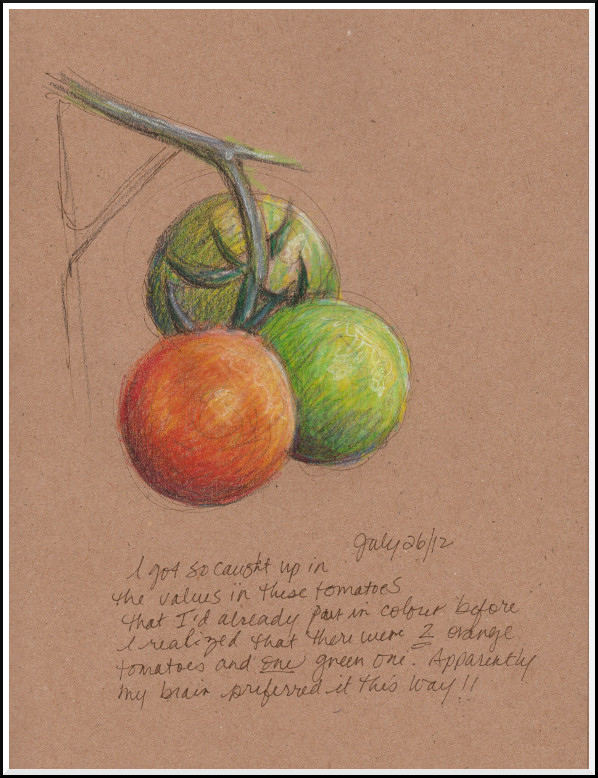 July 26/12
I got so caught up in
the values in these tomatoes
that I'd already put in colour before
I realized that there were 2 orange
tomatoes and one green one. Apparently
my brain preferred it this way!!